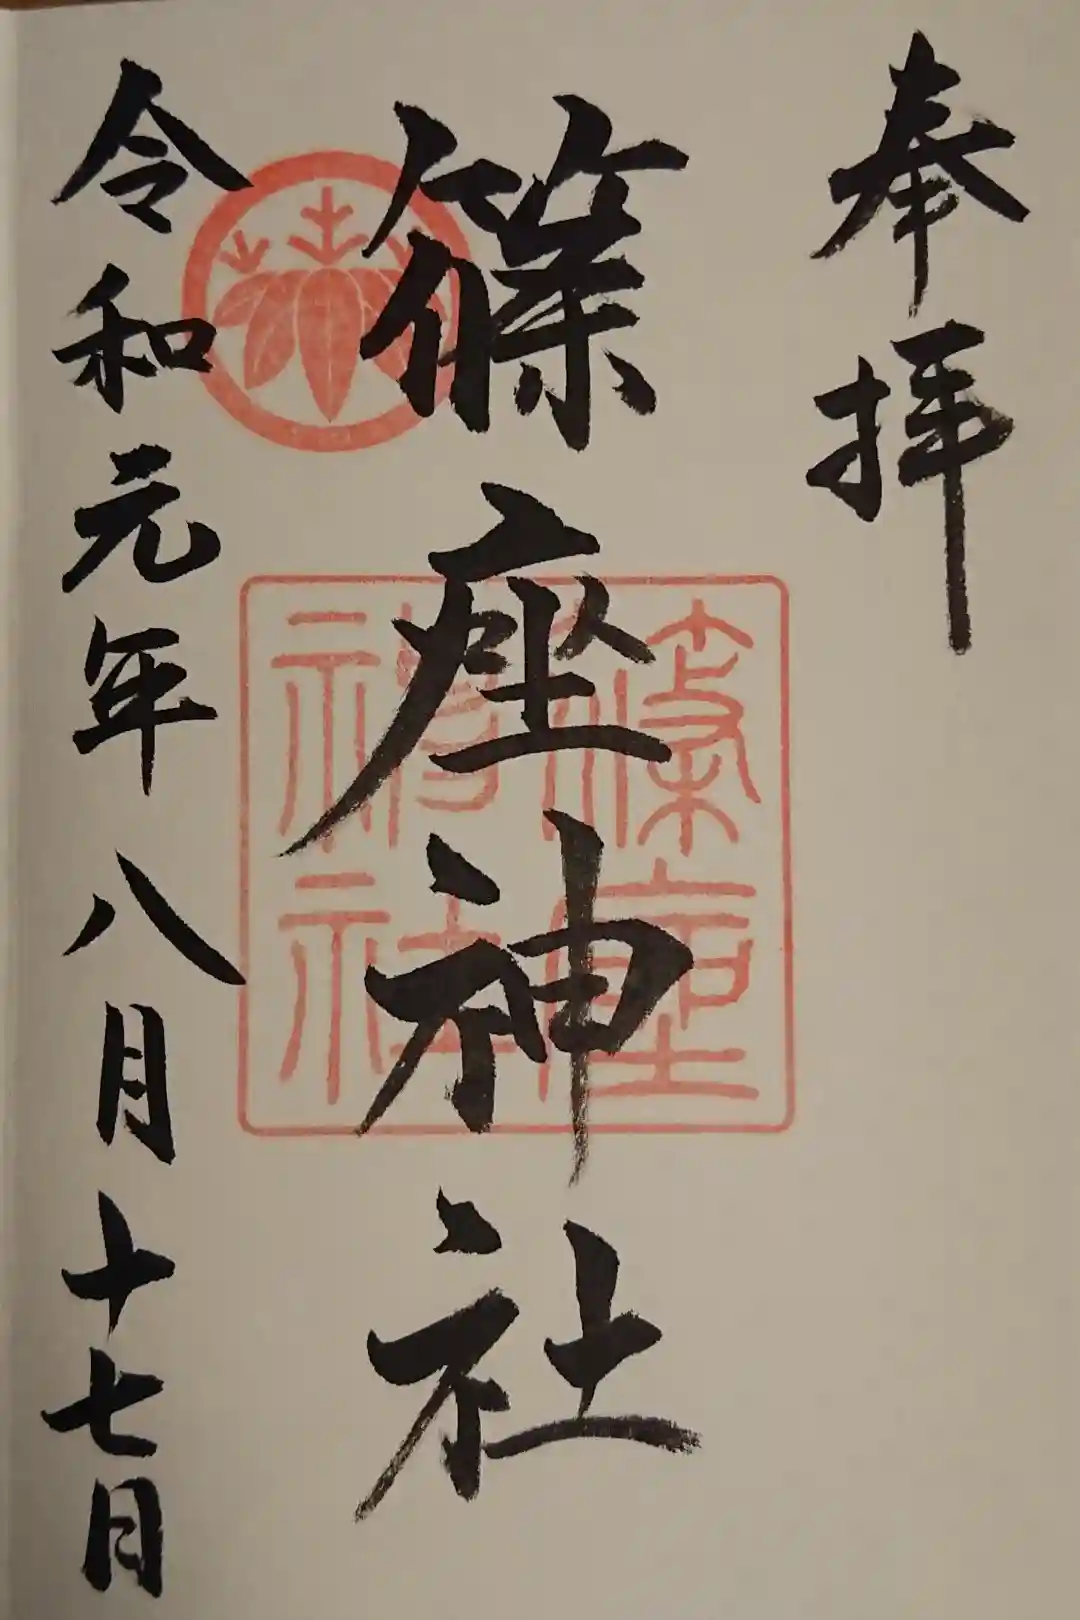 奉拝
篠座神社
篠座
神社
令和元年八月十七日